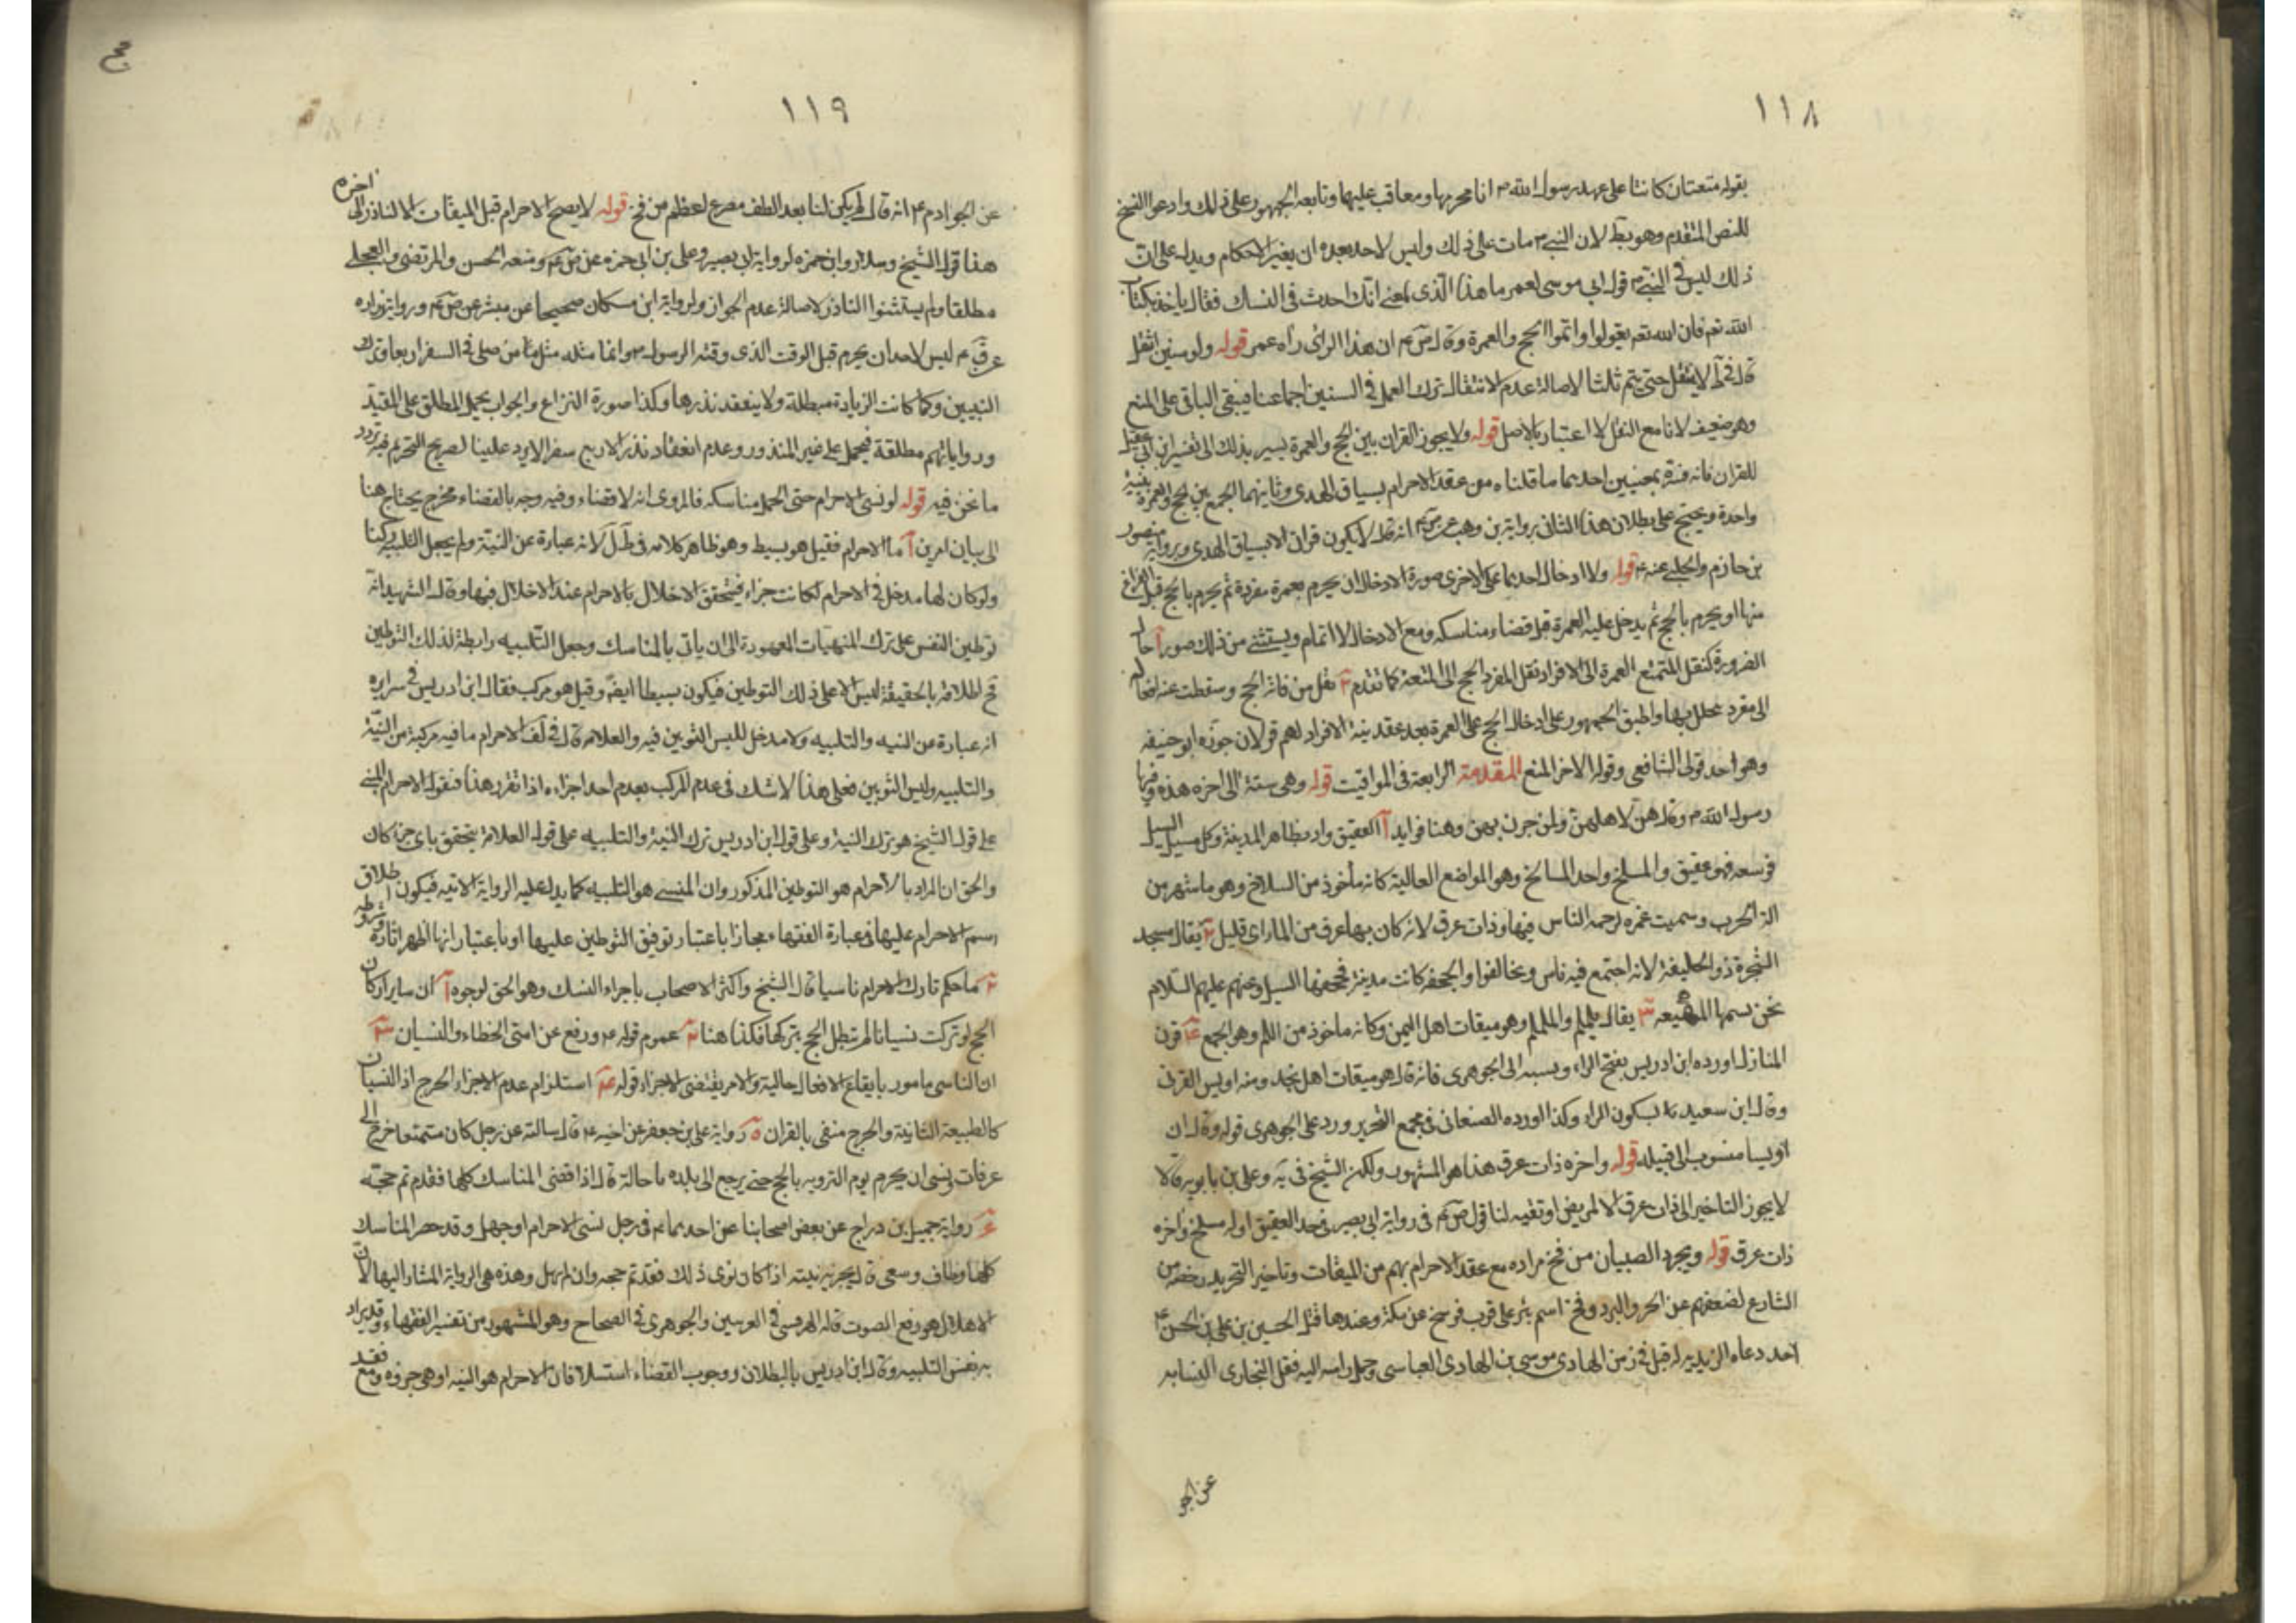 ١١٨
بقوله متعتان كانتا على عهد رسول الله ص انا محرمها ومعاقب عليهما وتابعه الجمهور على ذلك وادعوا النسخ
للنص المتقدم وهو بط لان النبي ص مات على ذلك وليس لاحد بعده ان يغير الاحكام ويدل على ان
ذلك ليس في النبي ص قول ابي موسى لعمر ما هذا الذي احدث في النسك فقال ناخذ بكتاب
الله تعم فان الله تعم يقول واتموا الحج والعمرة وقال ص ع ان هذا الراى راه عمر قوله ولو سنين انتقل
قال في لا ينتقل حتى يتم ثلثا لاصالة عدم الانتقال ترك العمل في السنين اجماعنا فيبقى الباقي على المنع
وهو ضعيف لانا مع النقل لا اعتبار بالاصل قوله ولا يجوز القران بين الحج والعمرة يسير بذلك الى تفسير ابن ابي عقيل
للقران فانه فسره بمعنيين احدهما ما قلناه من عقد الاحرام بسياق الهدى وثانيهما الجمع بين الحج والعمرة بنية
واحدة ويحتج على بطلان هذا الثاني برواية بن وهب عن ص ع انه قال لا يكون قران الا بسياق الهدى وبرواية منصور
بن حازم والحلبي عنه ع قوله ولا ادخال احدهما على الاخرى صورة الادخال ان يحرم بعمرة مفردة ثم يحرم بالحج قبل الفراغ
منها او يحرم بالحج ثم يدخل عليه العمرة قبل قضاء مناسكه ومع الادخال لا اتمام ويستثنى من ذلك صور آ حال
الضرورة كنقل المتمتع العمرة الى الافراد ونقل المفرد الحج الى المتعة كما تقدم ٢ نقل من فاته الحج وسقطت عنه افعاله
الى مفرد تحلل بها واطبق الجمهور على ادخال الحج على العمرة بعد عقد بنية الافراد لهم قولان جوزه ابو حنيفه
وهو احد قولى الشافعي وقوله الاخر المنع المقدمة الرابعة في المواقيت قوله وهي ستة الى اخره هذه وقتها
رسول الله ص وقال هن لاهلهن ولمن مررن بهن وهنا فوايد آ العقيق واد بظاهر المدينة وكل مسيل السيل
فوسعه فهو عقيق والمسلخ واحد المسالخ وهو المواضع العالية كانه مأخوذ من السلاخ وهو ما شهر من
الة الحرب وسميت غمره لزحمه الناس فيها وذات عرق لانه كان بها عرق من الماء اى قليل ٢ يقال مسجد
الشجرة ذو الحليفة لانه اجتمع فيه ناس وتحالفوا والجحفه كانت مدينة فجحفها السيل وعنهم عليهم السلام
نحن نسمها المهيعه ٣ يقال يلملم والململم وهو ميقات اهل اليمن وكانه ماخوذ من اللم وهو الجمع ٤ قرن
المنازل اورده ابن ادريس بفتح الراء وينسبه الى الجوهرى فانه قال هو ميقات اهل نجد ومنه اويس القرنى
وقال ابن سعيد بسكون الراء وكذا اورده الصنعانى في مجمع التحرير ورد على الجوهرى قوله وقال ان
اويسا منسوب الى قبيله قوله واخره ذات عرق هذا هو المشهور ولكن الشيخ في يه وعلى بن بابويه قالا
لا يجوز التاخير الى ذات عرق الا لمريض او تقيه لنا قول ص ع في رواية ابى بصير حد العقيق اوله مسلخ واخره
ذات عرق قوله ويجرد الصبيان من فخ مراده مع عقد الاحرام بهم من الميقات وتاخير التجريد رخصة من
الشارع لضعفهم عن الحر والبرد وفخ اسم بئر على قرب فرسخ عن مكة وعندها قتل الحسين بن على بن الحسن ع
احد دعاه الزيديه قبل في زمن الهادى موسى بن الهادى العباسى وحمل راسه اليه فنقل البخارى النسابه
عن الجو
١١٩
عن الجوادم ع انه قال لم يكن لنا بعد الطف مصرع اعظم من فخ قوله لا يصح الاحرام قبل الميقات الا لناذر الى اخره
هذا قول الشيخ وسلار وابن حمزه لرواية ابى بصير وعلى بن ابى حمزه عن ص ع ومنعه الحسن والمرتضى والعجلى
مطلقا ولم يستثنوا الناذر لاصالة عدم الجواز ولرواية ابن مسكان صحيحا عن ميسر عن ص ع ورواية زراره
عن ق ع ليس لاحد ان يحرم قبل الوقت الذى وقته الرسول ص وانما مثله مثل من صلى في السفر اربعا وترك
الثنتين وكما كانت الزيادة مبطلة ولا ينعقد نذرها وكذا صورة النزاع والجواب يحمل المطلق على المقيد
ورواياتهم مطلقة فيحمل على غير المنذور وعدم انعقاد نذر الاربع سفرا لا يرد علينا لصريح التحريم فيه
ما نحن فيه قوله لو نسى الاحرام حتى اكمل مناسكه فالمروى انه لا قضاء وفيه وجه بالقضاء مخرج يحتاج هنا
الى بيان امرين آ ما الاحرام فقيل هو بسيط وهو ظاهر كلامه في ط ل لانه عبارة عن النية ولم يجعل التلبيه ركنا
ولو كان لها مدخل في الاحرام لكانت جزاء فيتحقق الاخلال بالاحرام عند الاخلال فيها وقال الشهيد انه
توطين النفس على ترك المنهيات المعهودة الى ان ياتى بالمناسك وجعل التلبيه رابطة لذلك التوطين
فح اطلاقه بالحقيقة ليس الا على ذلك التوطين فيكون بسيطا ايضا وقيل هو مركب فقال ابن ادريس في سرايره
انه عبارة عن النيه والتلبيه ولا مدخل للبس الثوبين فيه والعلامة قال في لف الاحرام ماهيه مركبة من النية
والتلبيه ولبس الثوبين فعلى هذا لا شك في عدم المركب بعدم احد اجزاءه اذا تقرر هذا فنقول الاحرام المنسى
على قول الشيخ هو ترك النية وعلى قول ابن ادريس ترك النية والتلبيه على قول العلامة يتحقق باى جزء كان
والحق ان المراد بالاحرام هو التوطين المذكور وان المنسى هو التلبيه كما يدل عليه الرواية الاتيه فيكون اطلاق
اسم الاحرام عليها في عبارة الفقهاء مجازا باعتبار توقيف التوطين عليها او باعتبار انها اظهر اثاره وشروطه
٢ ما حكم تارك الاحرام ناسيا قال الشيخ واكثر الاصحاب باجزاء النسك وهو الحق لوجوه آ ان ساير اركان
الحج لو تركت نسيانا لم تبطل الحج بتركها فكذا هنا ٢ عموم قوله ع ورفع عن امتى الخطاء والنسيان ٣
ان الناسى مامور بايقاع الافعال حالية والامر يقتضى الاجزاء قوله ٤ استلزام عدم الاجزاء الحرج اذ النسيان
كالطبيعة الثانية والحرج منفى بالقران ٥ رواية على بن جعفر عن اخيه ع قال سالته عن رجل كان متمتعا خرج الى
عرفات ونسى ان يحرم يوم الترويه بالحج حتى يرجع الى بلده ما حاله قال اذا قضى المناسك كلها فقد تم حجته
٦ رواية جميل بن دراج عن بعض اصحابنا عن احدهما ع في رجل نسى الاحرام او جهل وقد حضر المناسك
كلها وطاف وسعى قال يجزيه نيته اذا كان نوى ذلك فقد تم حجه وان لم يهل وهذه هى الرواية المشار اليها لان
الاهلال هو رفع الصوت قاله الهروى في الغريبين والجوهرى في الصحاح وهو المشهور من تفسير الفقهاء وقد يراد
به نفس التلبيه وقال ابن ادريس بالبطلان ووجوب القضاء استسلافا ان الاحرام هو النيه او هى جزؤه ومع فقد